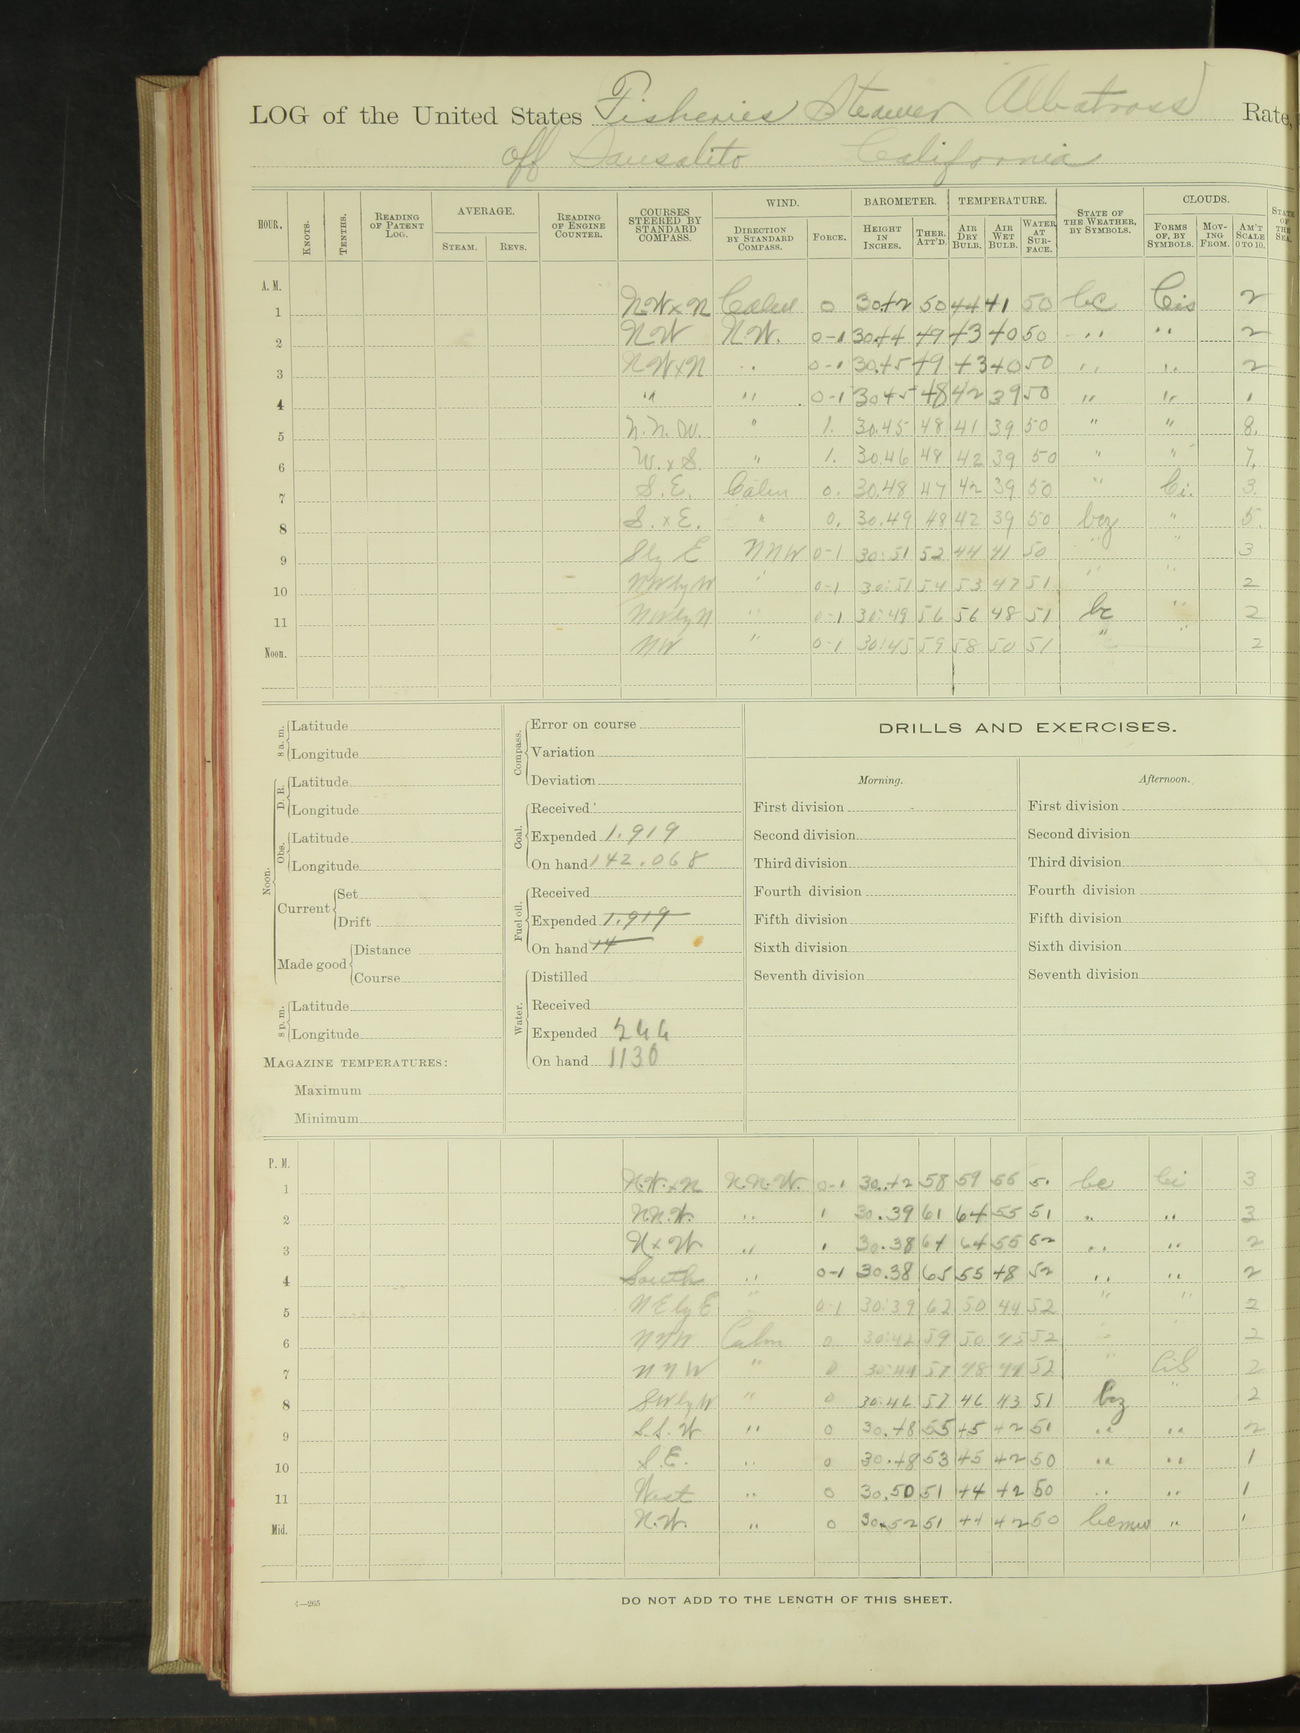 LOG of the United States Fisheries Steamer Albatross Rate,
off Sausalito California
HOUR. KNOTS. TENTHS. READING OF PATENT LOG. AVERAGE. STEAM. REVS. READING OF ENGINE COUNTER. COURSES STEERED BY STANDARD COMPASS. WIND. DIRECTION BY STANDARD COMPASS. FORCE. BAROMETER. HEIGHT IN INCHES. THER. ATT'D. TEMPERATURE. AIR DRY BULB. AIR WET BULB. WATER AT SURFACE. STATE OF THE WEATHER, BY SYMBOLS. CLOUDS. FORMS OF, BY SYMBOLS. MOVING FROM. AM'T SCALE 0 TO 10. STATE OF THE SEA.
A. M.
1 N.W x N Calm 0 30.42 50 44 41 50 bc Cis 2
2 NW N.W. 0-1 30.44 49 43 40 50 " " 2
3 N W x N " 0-1 30.45 49 43 40 50 " " 2
4 " " 0-1 30.45 48 42 39 50 " " 1
5 N.N.W. " 1. 30.45 48 41 39 50 " " 8.
6 W. x S. " 1. 30.46 48 42 39 50 " " 7.
7 S.E. Calm 0. 30.48 47 42 39 50 " Ci. 3.
8 S. x E. " 0. 30.49 48 42 39 50 bcz " 5.
9 Sly E NNW 0-1 30:51 52 44 41 50 " " 3
10 NWbyW " 0-1 30:51 54 53 47 51 " " 2
11 NWbyN " 0-1 30:49 56 56 48 51 bc " 2
Noon. NW " 0-1 30:45 59 58 50 51 " " 2
8 a. m. Latitude
Longitude
Noon. D. R. Latitude
Longitude
Obs. Latitude
Longitude
Current Set
Drift
Made good Distance
Course
8 p. m. Latitude
Longitude
MAGAZINE TEMPERATURES:
Maximum
Minimum
Compass. Error on course
Variation
Deviation
Coal. Received
Expended 1.919
On hand 142.068
Fuel oil. Received
Expended 1.919
On hand 14
Water. Distilled
Received
Expended 244
On hand 1130
DRILLS AND EXERCISES.
Morning. Afternoon.
First division First division
Second division Second division
Third division Third division
Fourth division Fourth division
Fifth division Fifth division
Sixth division Sixth division
Seventh division Seventh division
P. M.
1 N.W. x N N.N.W. 0-1 30.42 58 59 56 51 bc Ci 3
2 N.N.W. " 1 30.39 61 64 55 51 " " 3
3 N x W " 1 30.38 64 64 55 52 " " 2
4 South " 0-1 30.38 65 55 48 52 " " 2
5 NEbyE " 0-1 30:39 62 50 44 52 " " 2
6 NNW Calm 0 30:42 59 50 45 52 " " 2
7 NNW " 0 30:44 57 48 44 52 " CiS 2
8 SWbyW " 0 30:46 57 46 43 51 bcz " 2
9 S.S.W " 0 30.48 55 45 42 51 " " 2
10 S.E. " 0 30.48 53 45 42 50 " " 1
11 West " 0 30.50 51 44 42 50 " " 1
Mid. N.W. " 0 30.52 51 44 42 50 " 1
4—265
DO NOT ADD TO THE LENGTH OF THIS SHEET.